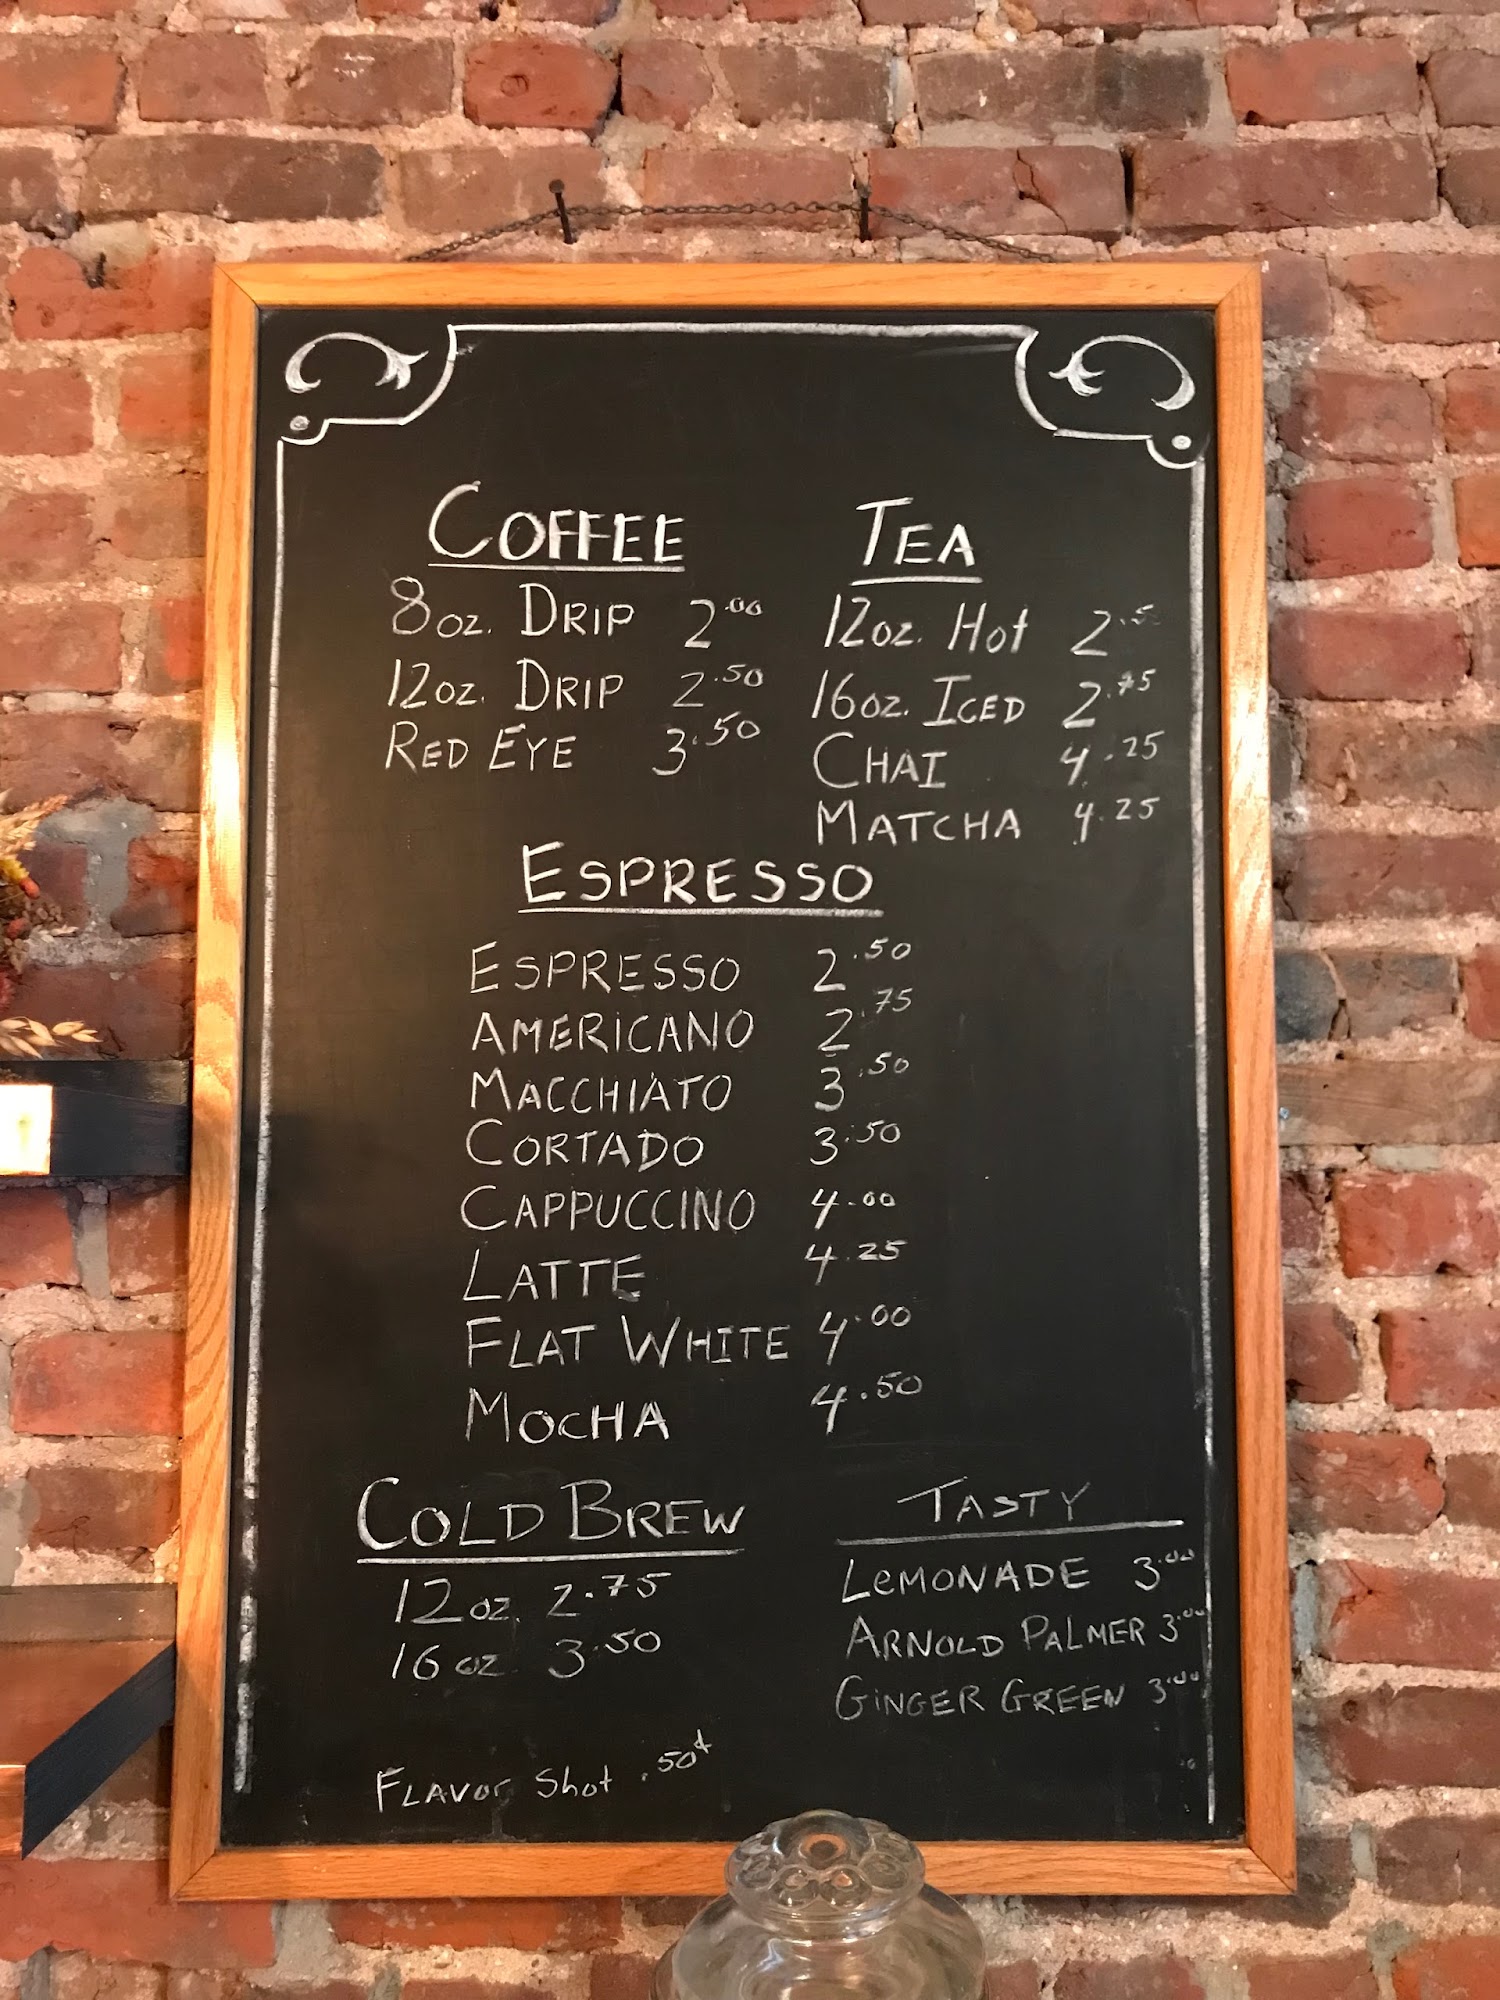 COFFEE
8oz. DRIP 2.00
12oz. DRIP 2.50
RED EYE 3.50
TEA
12oz. Hot 2.5
16oz. ICED 2.75
CHAI 4.25
MATCHA 4.25
ESPRESSO
ESPRESSO 2.50
AMERICANO 2.75
MACCHIATO 3.50
CORTADO 3.50
CAPPUCCINO 4.00
LATTE 4.25
FLAT WHITE 4.00
MOCHA 4.50
COLD BREW
12oz. 2.75
16oz 3.50
TASTY
LEMONADE 3.00
ARNOLD PALMER 3.00
GINGER GREEN 3.00
FLAVOR Shot .50¢